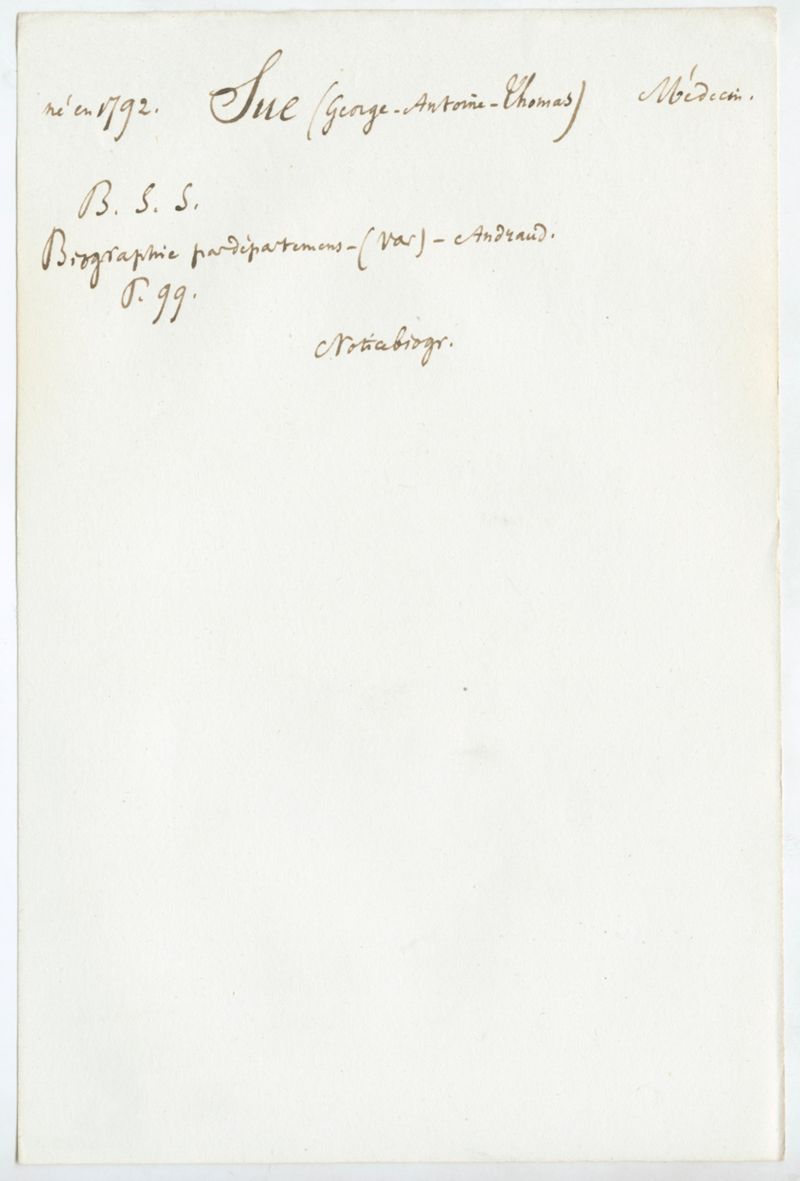 né en 1792. Sue (George-Antoine-Thomas) Médecin.
B. S. S.
Biographie par départemens - (Var) - Andraud.
P. 99.
Notice biogr.